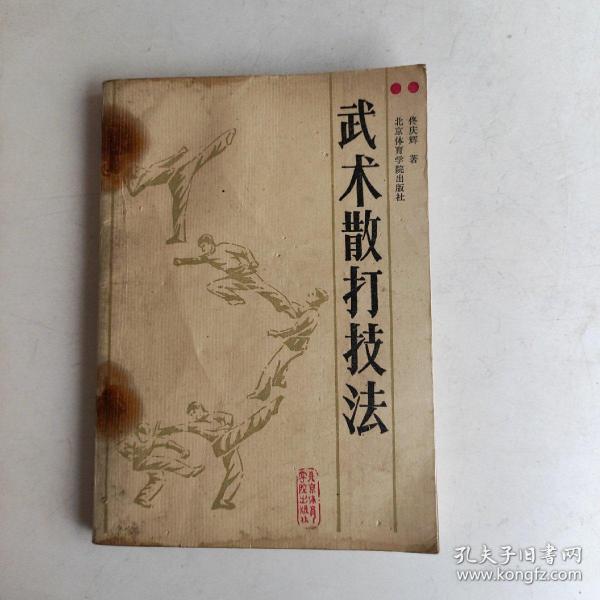 武术散打技法
佟庆辉 著
北京体育学院出版社
北京体育
学院出版社
孔夫子旧书网
www.kongfz.com